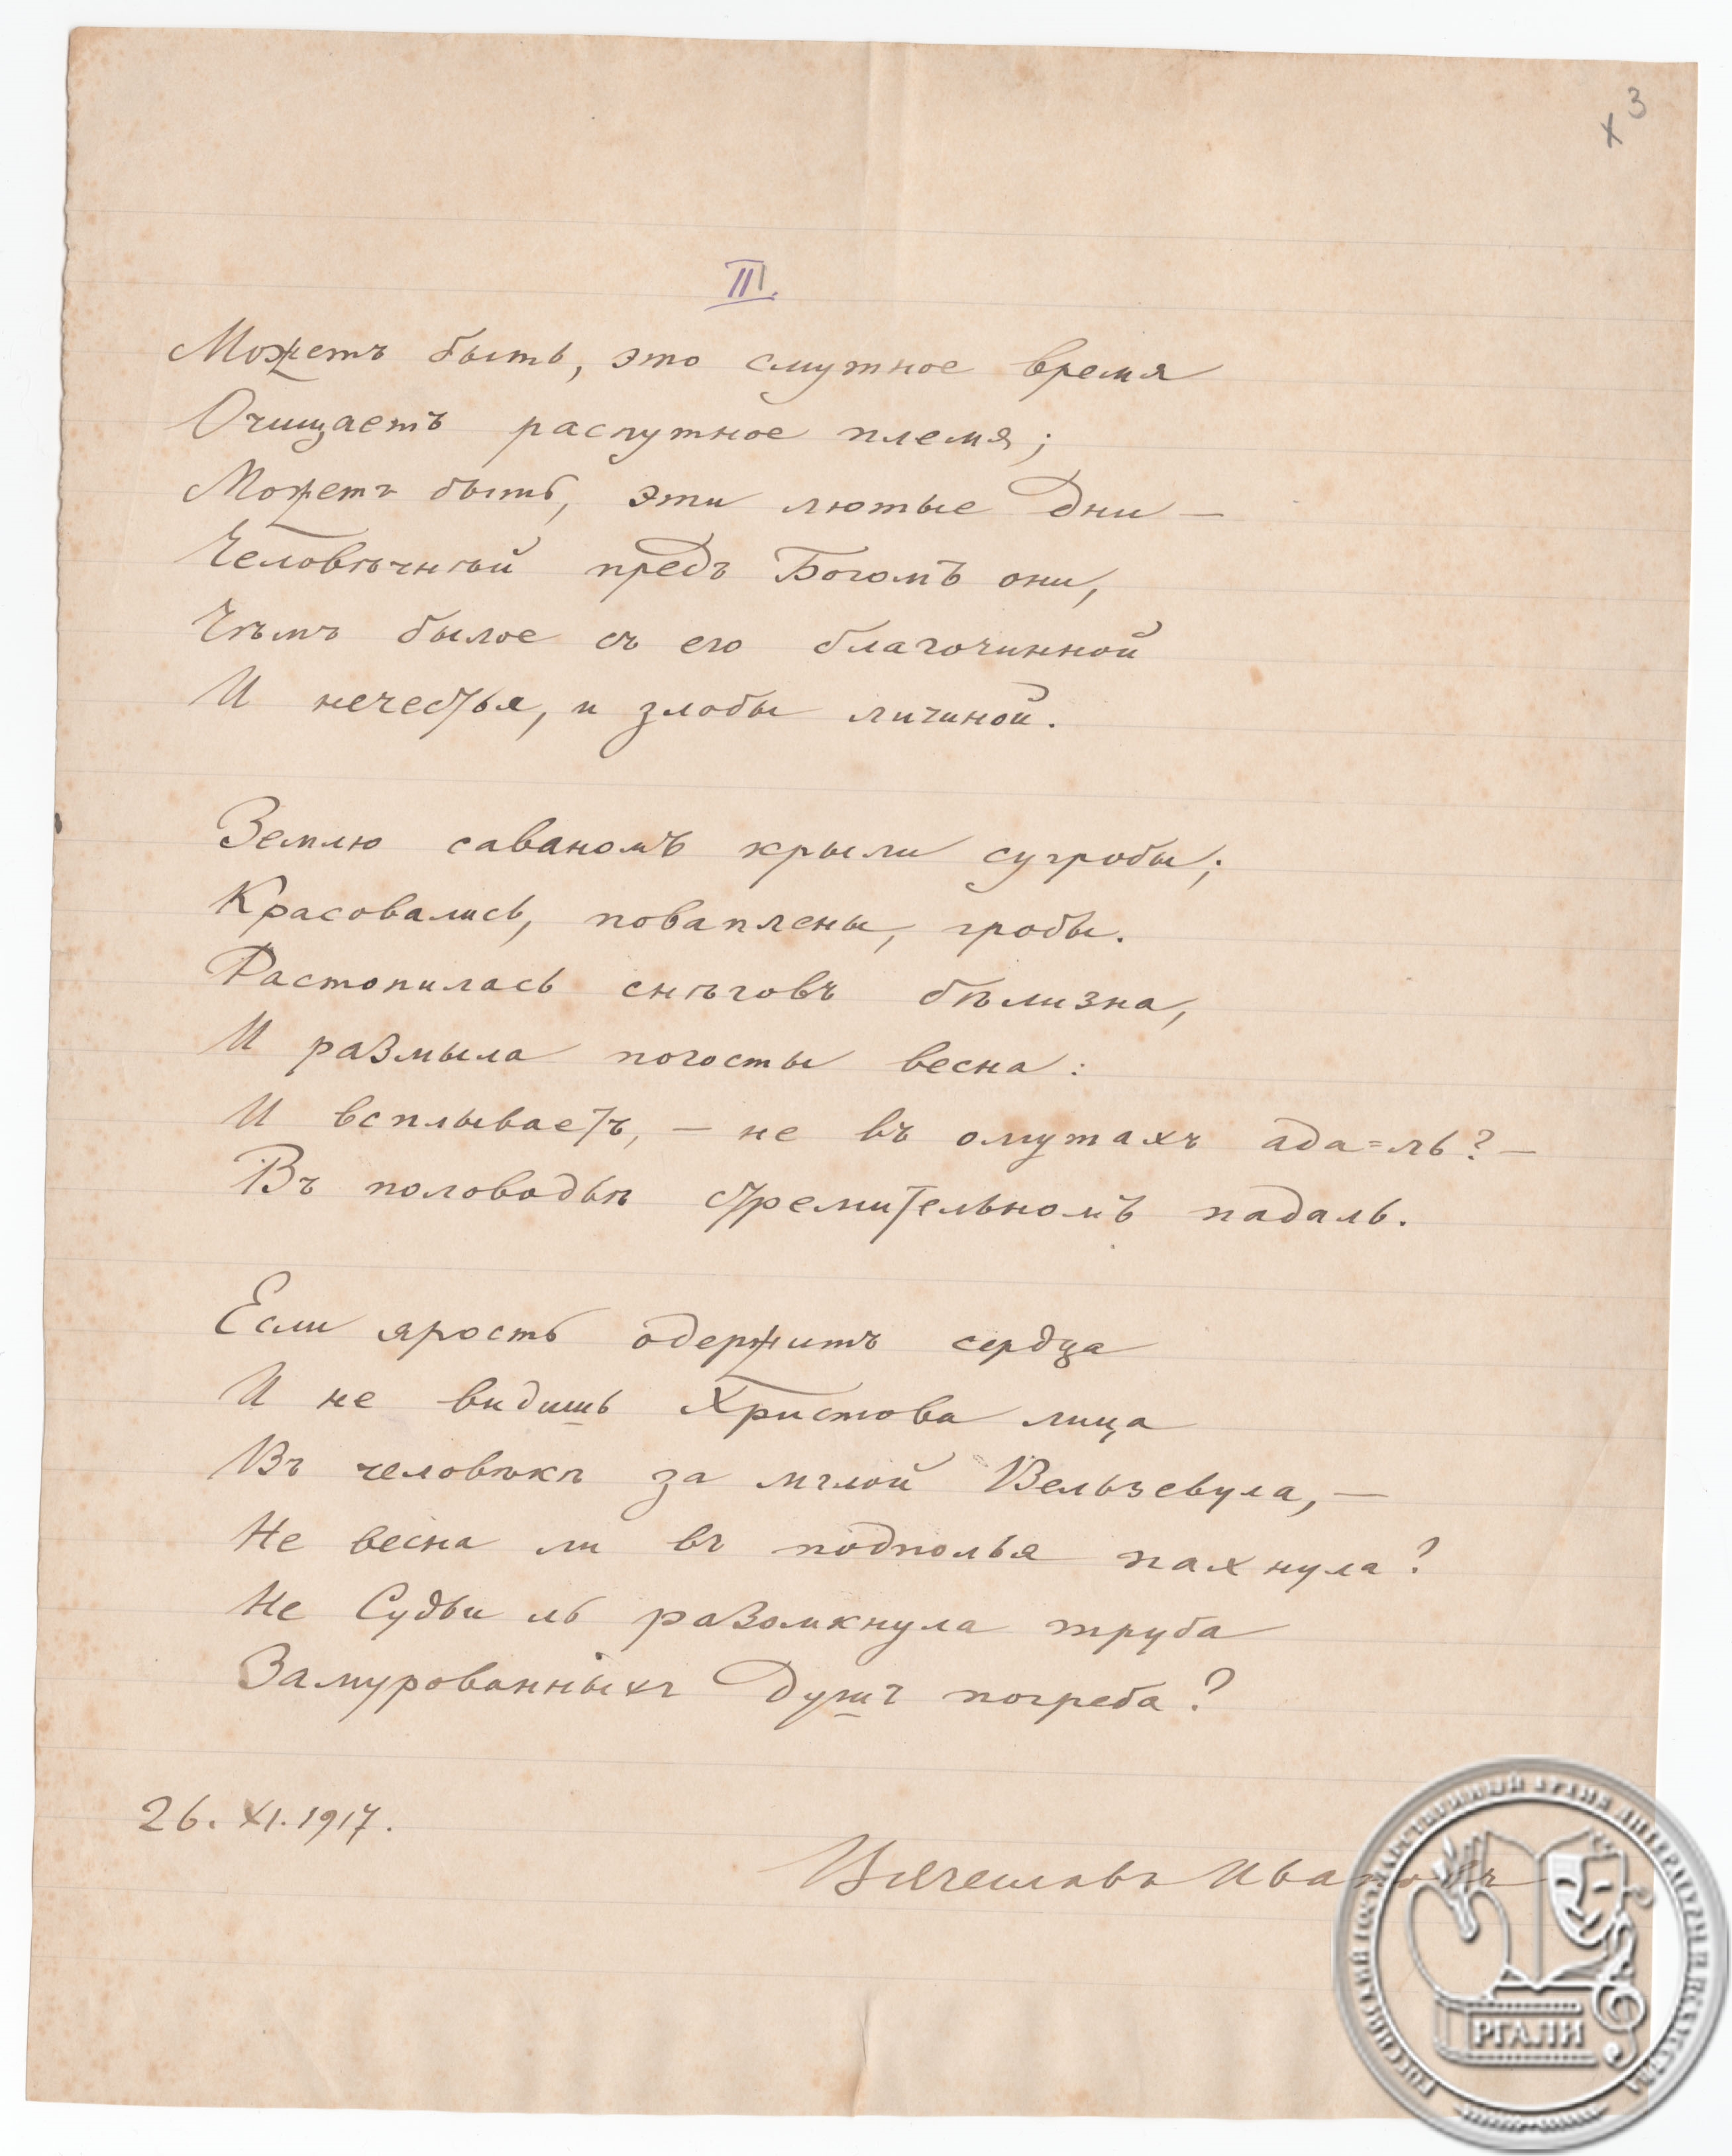 3
III.
Можетъ быть, это смутное время
Очищаетъ распутное племя;
Можетъ быть, эти лютые дни –
Человѣчнѣй предъ Богомъ они,
Чѣмъ былое съ его благочинной
И нечестья, и злобы личиной.
Землю саваномъ крыли сугробы;
Красовались, поваплены, гробы.
Растопилась снѣговъ бѣлизна,
И размыла погосты весна:
И всплываетъ, – не въ омутахъ ада=ль? –
Въ половодьѣ стремительномъ падаль.
Если ярость одержитъ сердца
И не видишь Христова лица
Въ человѣкѣ за мглой Вельзевула, –
Не весна ли въ подполья пахнула?
Не Судьи ль разомкнула труба
Замурованныхъ душъ погреба?
26. XI. 1917.
Вячеславъ Ивановъ
РОССИЙСКИЙ ГОСУДАРСТВЕННЫЙ АРХИВ ЛИТЕРАТУРЫ И ИСКУССТВА
РГАЛИ